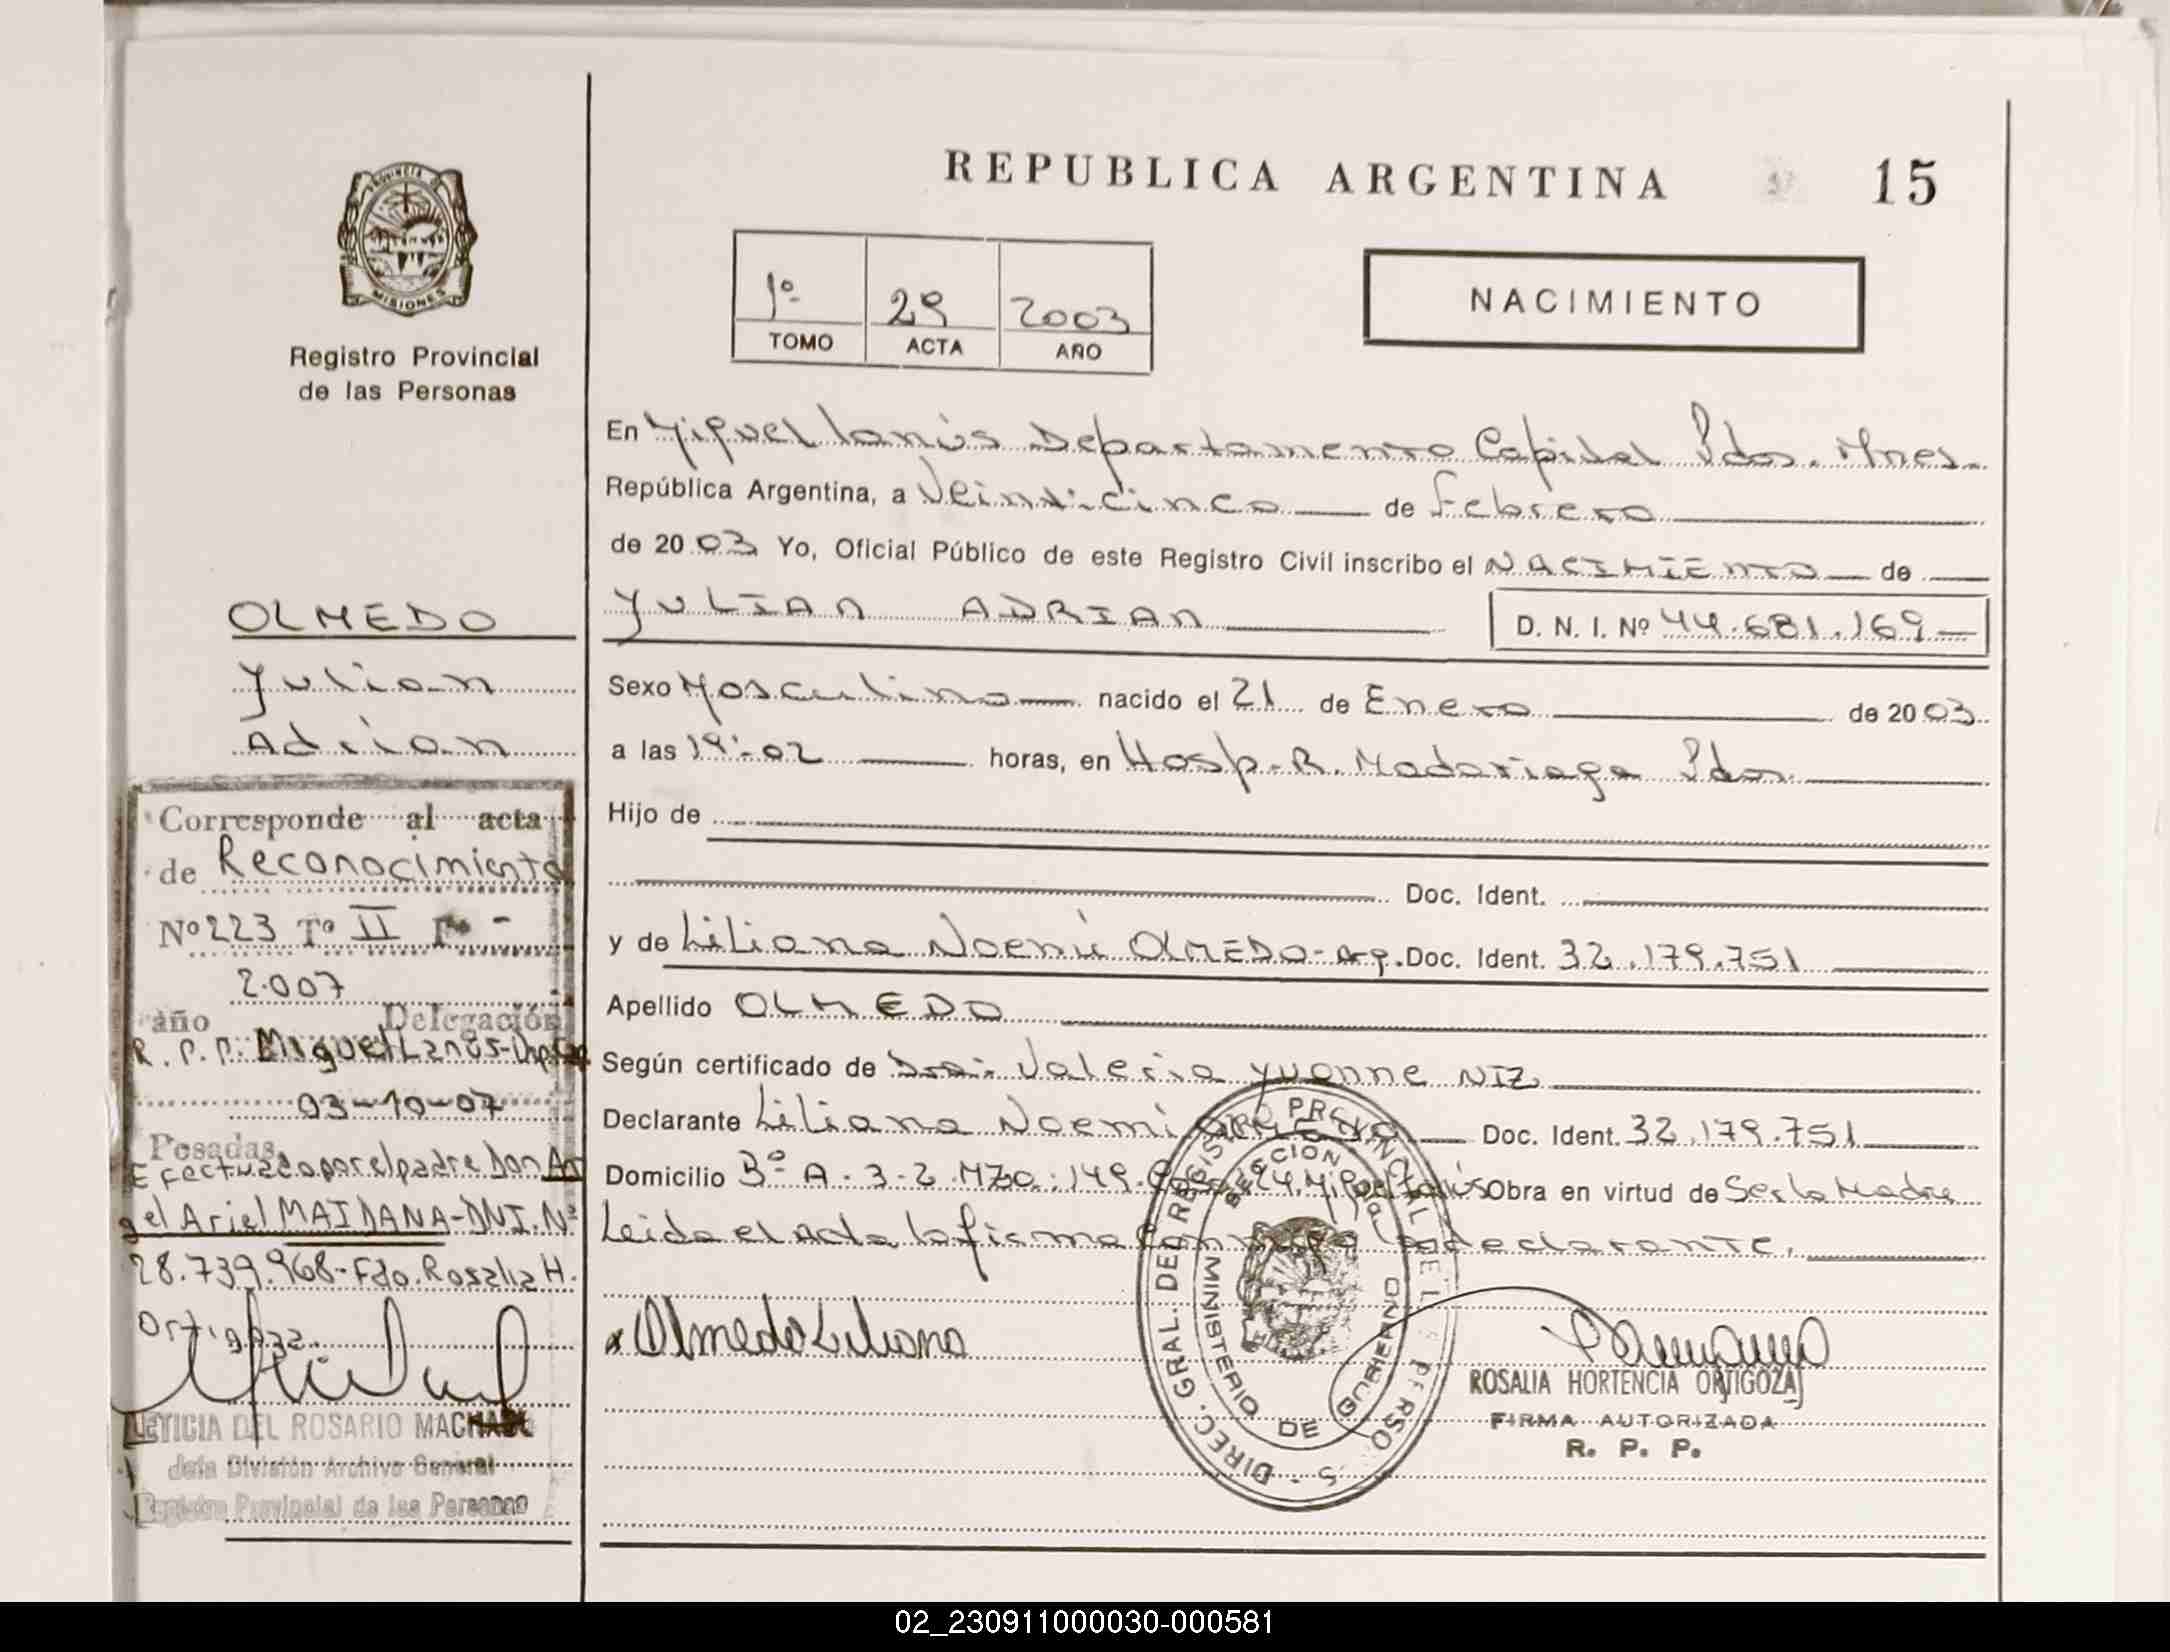 REPUBLICA ARGENTINA
15
PROVINCIA DE
MISIONES
Registro Provincial
de las Personas
1º 29 2003
TOMO ACTA AÑO
NACIMIENTO
En Miguel Lanús Departamento Capital Pdas. Mnes.
República Argentina, a Veinticinco de Febrero
de 2003 Yo, Oficial Público de este Registro Civil inscribo el NACIMIENTO de
YULIAN ADRIAN
D. N. I. Nº 44.681.169
Sexo Masculino nacido el 21 de Enero de 2003
a las 19:02 horas, en Hosp. R. Madariaga Pdas.
Hijo de
Doc. Ident.
y de Liliana Noemí OLMEDO-arg. Doc. Ident. 32.179.751
Apellido OLMEDO
Según certificado de Dra. Valeria Yvonne NIZ
Declarante Liliana Noemi OLMEDO Doc. Ident. 32.179.751
Domicilio Bº A-3-2 MZA:149. Casa 24. Miguel Lanús Obra en virtud de Ser la Madre
Leida el Acta la firma conmigo la declarante.
Olmedo Liliana
ROSALIA HORTENCIA ORTIGOZA
FIRMA AUTORIZADA
R. P. P.
DIREC. GRAL. DEL REGISTRO PROVINCIAL DE LAS PERSONAS
MINISTERIO DE GOBIERNO
OLMEDO
Yulian
Adrian
Corresponde al acta
de Reconocimiento
Nº 223 Tº II Fº -
2.007
año Delegación
R.P.P. Miguel Lanús-Dpto Cap
03-10-07
Posadas,
Efectuado por el padre Don An
gel Ariel MAIDANA-DNI. Nº
28.739.968-Fdo. Rosalia H.
Ortigoza.
LETICIA DEL ROSARIO MACHADO
Jefa División Archivo General
Registro Provincial de las Personas
02_230911000030-000581